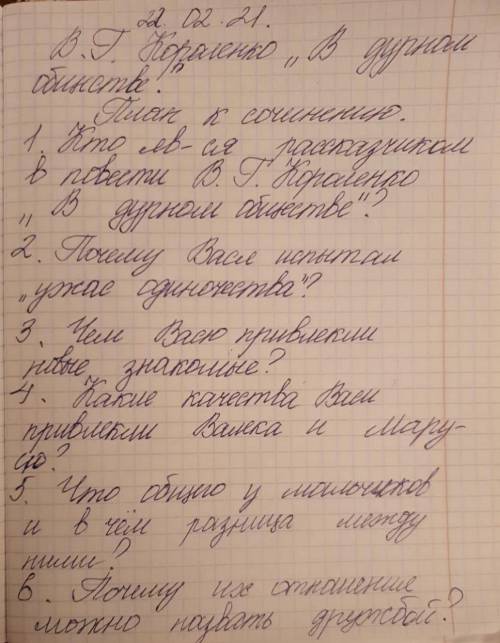 22. 02. 21.
В. Г. Короленко „В дурном
обществе."
План к сочинению.
1. Кто яв-ся рассказчиком
в повести В. Г. Короленко
„В дурном обществе"?
2. Почему Вася испытал
„ужас одиночества"?
3. Чем Васю привлекли
новые знакомые?
4. Какие качества Васи
привлекли Валека и Мару-
сю?
5. Что общего у мальчиков
и в чём разница между
ними?
6. Почему их отношения
можно назвать дружбой?